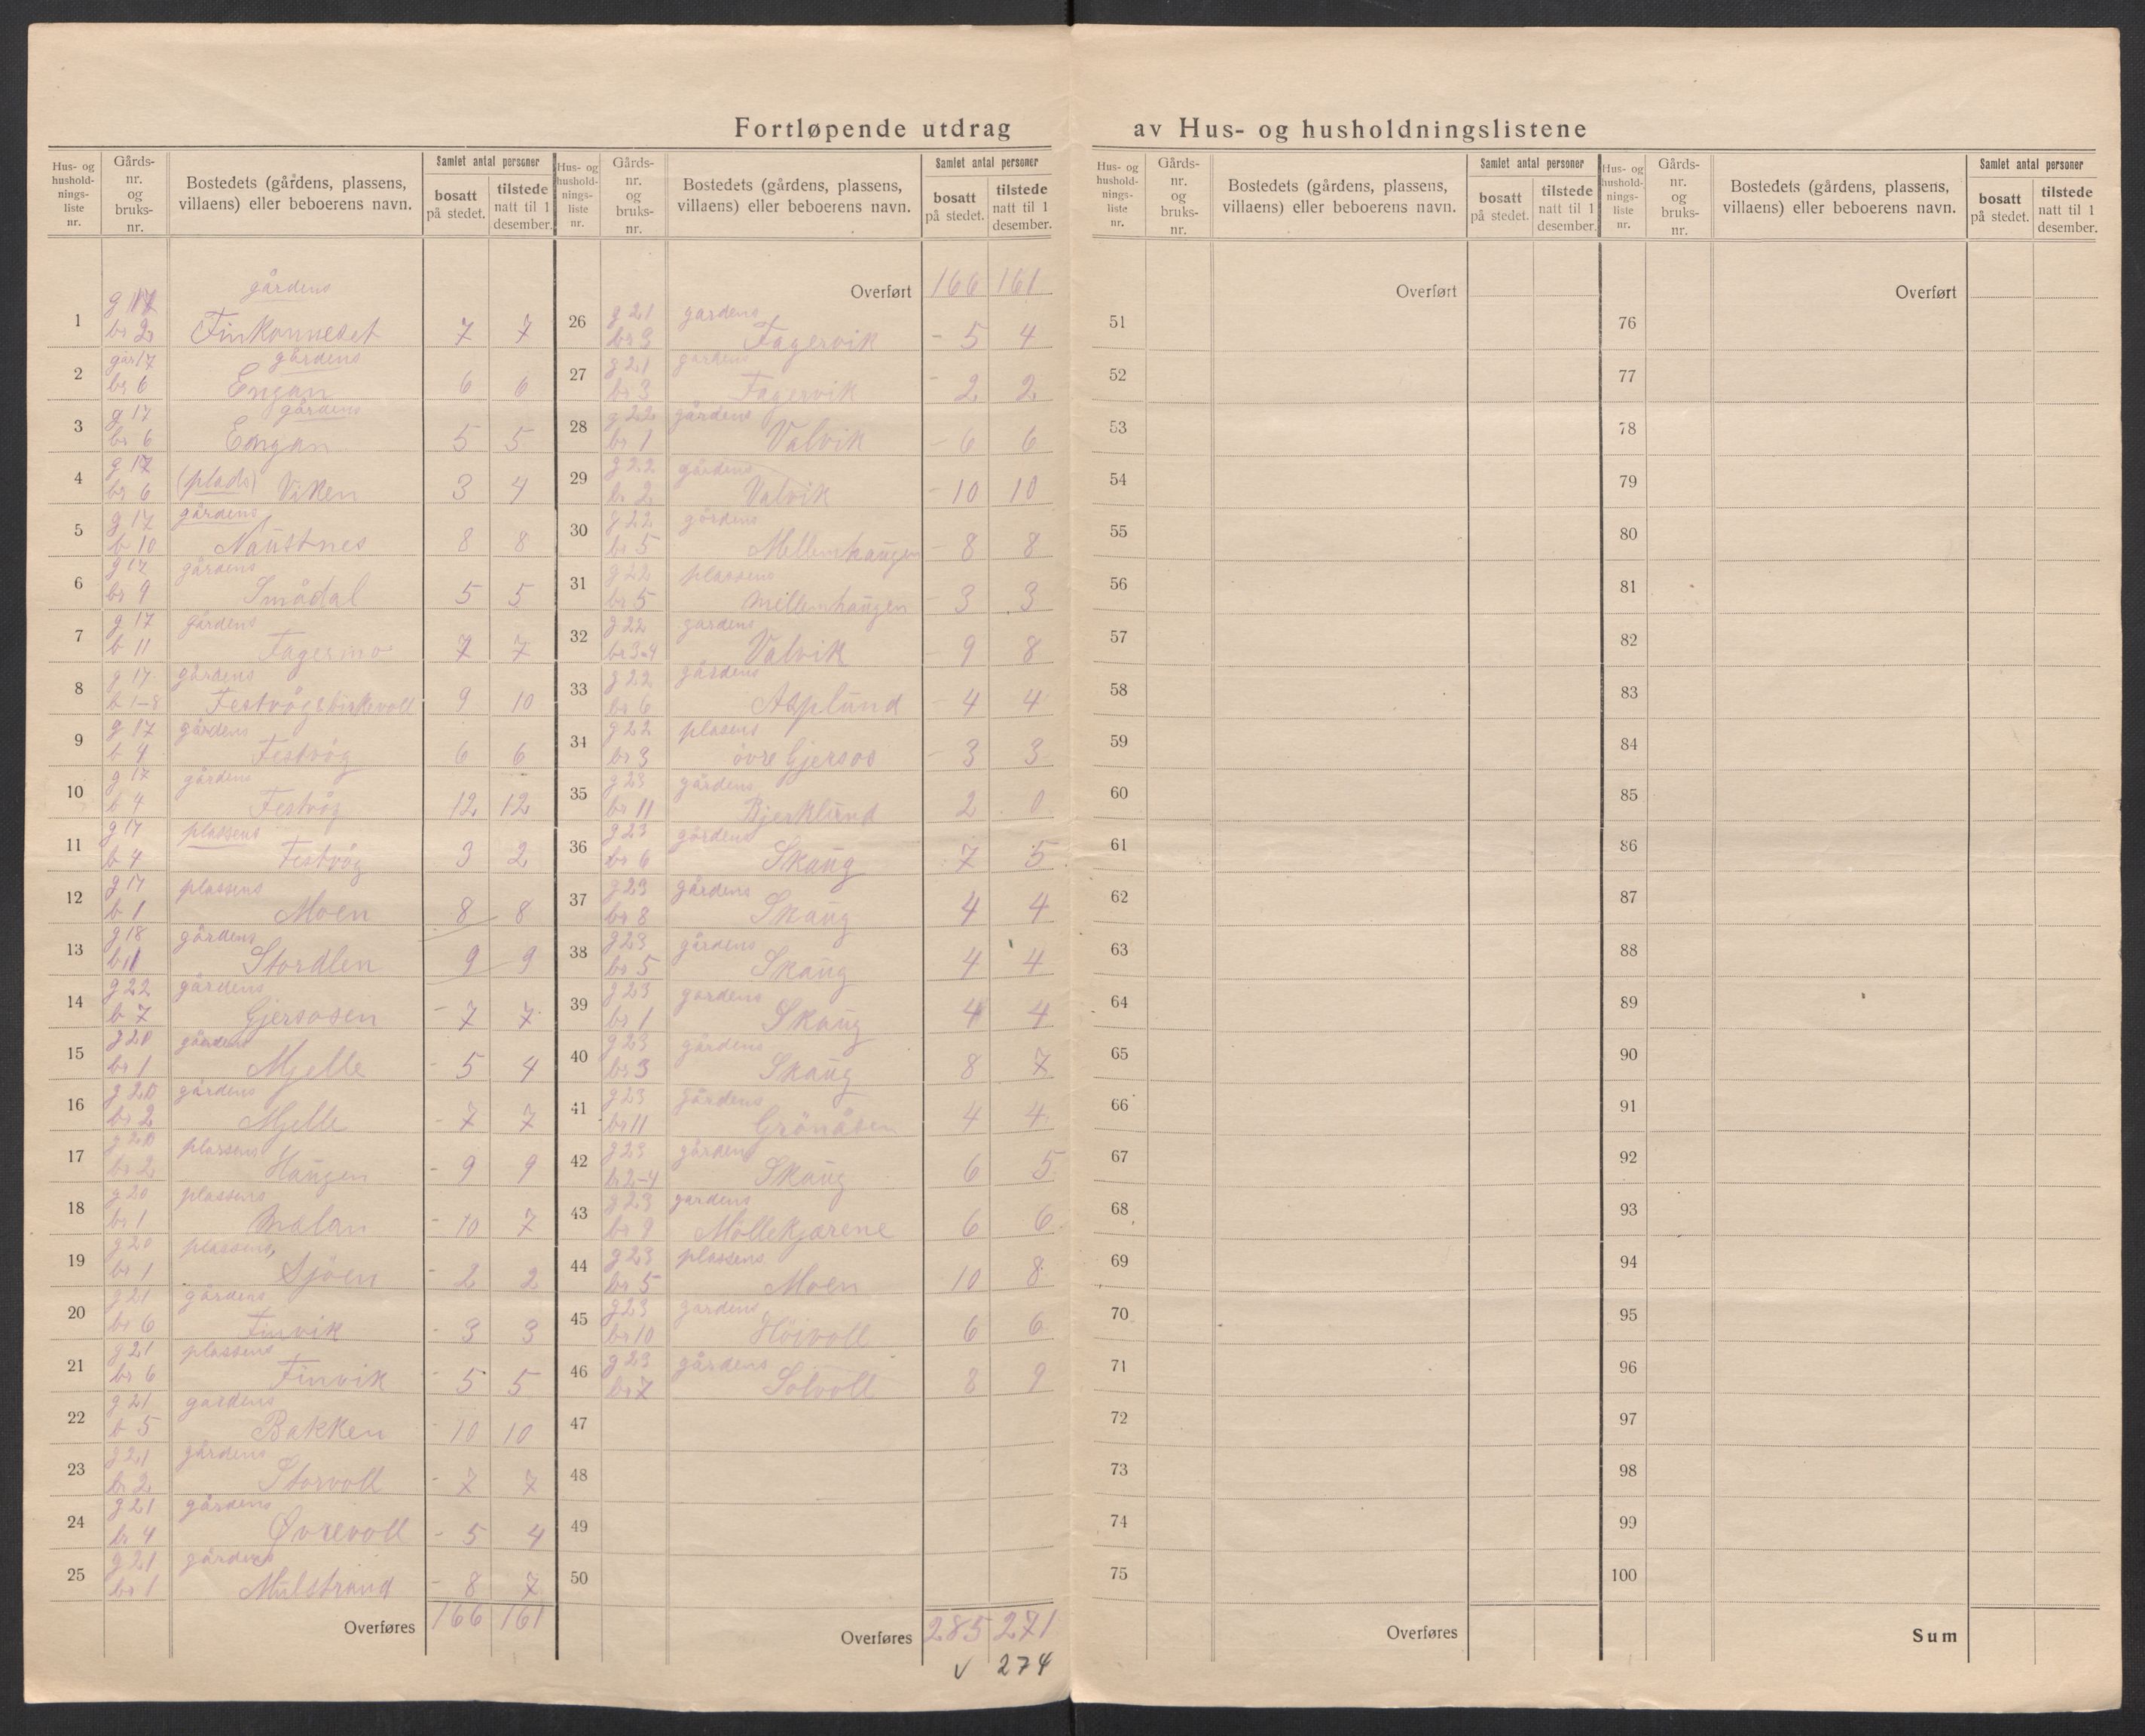 Fortløpende utdrag av Hus- og husholdningslistene
Hus- og hushold- nings- liste nr. | Gårds- nr. og bruks- nr. | Bostedets (gårdens, plassens, villaens) eller beboerens navn. | Samlet antal personer | bosatt på stedet. | tilstede natt til 1 desember.
1 g 17 br 2 gårdens Finkonneset 7 7
2 går 17 br 6 gårdens Engan 6 6
3 g 17 br 6 gårdens Engan 5 5
4 g 17 br 6 (plads) Viken 3 4
5 g 17 b 10 gårdens Naustnes 8 8
6 g 17 br 9 gårdens Smådal 5 5
7 g 17 b 11 gårdens Fagermo 7 7
8 g 17 b 1-8 gårdens Festvågsbirkevoll 9 10
9 g 17 b 4 gårdens Festvåg 6 6
10 g 17 b 4 gårdens Festvåg 12 12
11 g 17 b 4 plassens Festvåg 3 2
12 g 17 b 1 plassens Moen 8 8
13 g 18 b 1 gårdens Stordlen 9 9
14 g 22 b 7 gårdens Gjersosen - 7 7
15 g 20 br 1 gårdens Mjelle - 5 4
16 g 20 br 2 gårdens Mjelle - 7 7
17 g 20 br 2 plassens Haugen - 9 9
18 g 20 br 1 plassens Malan - 10 7
19 g 20 br 1 plassens Sjöen - 2 2
20 g 21 br 6 gårdens Finvik - 3 3
21 g 21 br 6 plassens Finvik - 5 5
22 g 21 b 5 gardens Bakken - 10 10
23 g 21 br 2 gårdens Storvoll - 7 7
24 g 21 br 4 gårdens Øvrevoll - 5 4
25 g 21 br 1 gårdens Mulstrand - 8 7
Overføres 166 161
Hus- og hushold- nings- liste nr. | Gårds- nr. og bruks- nr. | Bostedets (gårdens, plassens, villaens) eller beboerens navn. | Samlet antal personer | bosatt på stedet. | tilstede natt til 1 desember.
Overført 166 161
26 g 21 br 3 gardens Fagervik - 5 4
27 g 21 br 3 gardens Fagervik - 2 2
28 g 22 br 1 gårdens Valvik - 6 6
29 g 22 br 2 gårdens Valvik - 10 10
30 g 22 br 5 gårdens Mellemhaugen - 8 8
31 g 22 br 5 plassens Mellemhaugen - 3 3
32 g 22 br 3-4 gardens Valvik - 9 8
33 g 22 br 6 gårdens Asplund - 4 4
34 g 22 br 3 plasens övre Gjersos - 3 3
35 g 23 br 11 gårdens Bjerklund 2 0
36 g 23 br 6 gördens Skaug 7 5
37 g 23 br 8 gårdens Skaug 4 4
38 g 23 br 5 gårdens Skaug 4 4
39 g 23 br 1 gardens Skaug 4 4
40 g 23 br 3 gårdens Skaug 8 7
41 g 23 br 11 gårdens Grönåsen 4 4
42 g 23 br 2-4 gårdens Skaug 6 5
43 g 23 br 9 gardens Möllekjærene 6 6
44 g 23 br 5 plassens Moen 10 8
45 g 23 br 10 gardens Höivoll 6 6
46 g 23 br 7 gårdens Solvoll 8 9
47
48
49
50
Overføres 285 271
v 274
Hus- og hushold- nings- liste nr. | Gårds- nr. og bruks- nr. | Bostedets (gårdens, plassens, villaens) eller beboerens navn. | Samlet antal personer | bosatt på stedet. | tilstede natt til 1 desember.
Overført
51
52
53
54
55
56
57
58
59
60
61
62
63
64
65
66
67
68
69
70
71
72
73
74
75
Overføres
Hus- og hushold- nings- liste nr. | Gårds- nr. og bruks- nr. | Bostedets (gårdens, plassens, villaens) eller beboerens navn. | Samlet antal personer | bosatt på stedet. | tilstede natt til 1 desember.
Overført
76
77
78
79
80
81
82
83
84
85
86
87
88
89
90
91
92
93
94
95
96
97
98
99
100
Sum